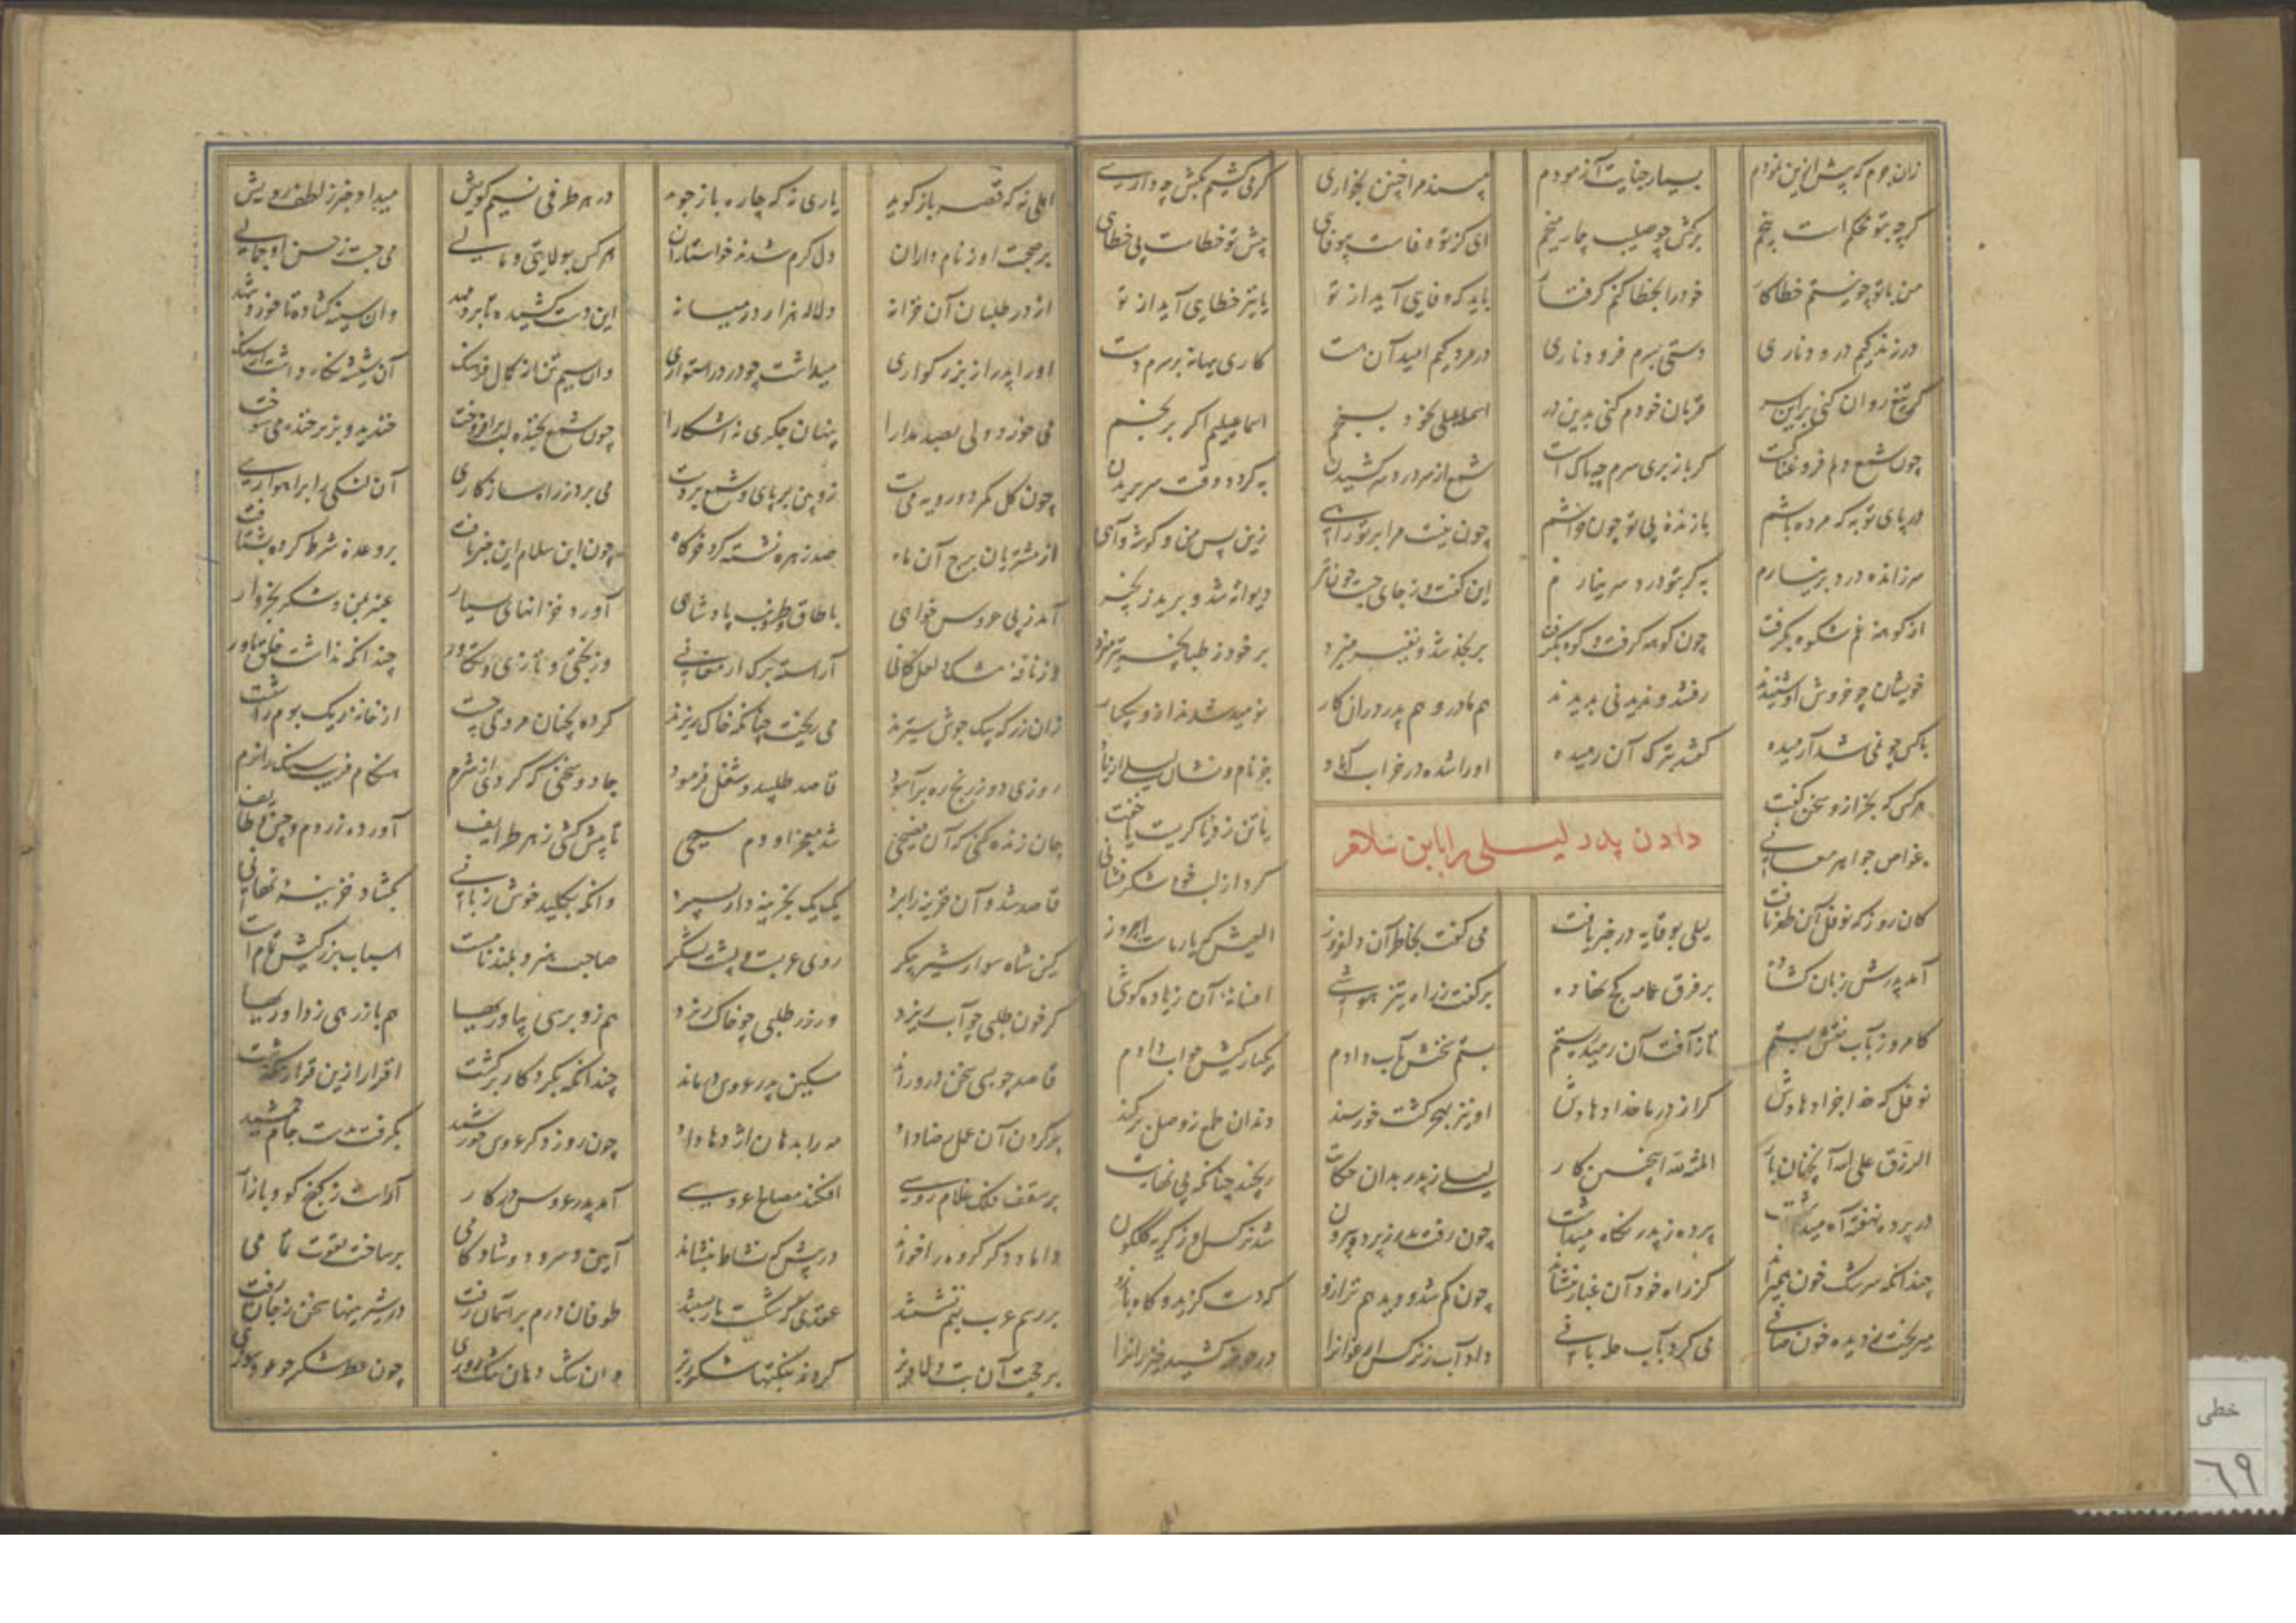 زان جرم که پیش ازین نمودم بسیار جنایت آزمودم مپسند مرا چنین بخواری گر می کشیم بکش چه داری
گرچه بتو محکم است بیخم برکش چو صلیب چار میخم ای کز تو وفاست بیوفایی پیش تو خطاست بی خطایی
من با تو چو نیستم خطاکار خود را بخطا کنم گرفتار باید که وفایی آید از تو یا تیر خطایی آید از تو
در زندگیم درود ناری دستی بسرم فرود ناری در مردگیم امید آن هست کاری ببهانه بر سرم دست
گر تیغ روان کنی برین سر قربان خودم کنی بدین در اسماعیلی ز خود بسنجم اسماعیلیم اگر برنجم
چون شمع دلم فروغناکست گر باز بری سرم چه باک است شمع از سر درد سر کشیدن به گردد وقت سر بریدن
در پای تو به که مرده باشم تا زنده بی تو چون خراشم چون نیست مرا بر تو راهی زین پس من و گوشه و آهی
سر زانده درد بر نیارم به گر بتو درد سر نیارم این گفت و ز جای جست چون تیر دیوانه شد و برید زنجیر
از کوهه غم شکوه بگرفت چون کوهه گرفت و کوه بگرفت بر نجد شد و نفیر میزد بر خود ز طپانچه تیر میزد
خویشان چو خروش او شنیدند رفتند و ندیدنی بدیدند هم مادر و هم پدر دران کار نومید شدند ازو بیکبار
با کس چو نمی شد آرمیده گفتند بترک آن رمیده او را شده در خراب و آباد جز نام و نشان لیلی از یاد
هر کس که بجز ازو سخن گفت یا تن زد یا گریخت یا خفت
دادن پدر لیلی را بابن سلام
غواص جواهر معانی کرد از لب خود شکر فشانی
کان روز که نوفل آن ظفر یافت لیلی بوقایه در خبر یافت می گفت بخاطر آن دلفروز الیش که یار ماست امروز
آمد پدرش زبان گشاده بر فرق عمامه کج نهاده بر گفت ز راه تیز هوشی افسانه آن زیاده کوشی
کامروز بآب نقش بستم تا ز آفت آن رمیده رستم بستم سخنش بآب دادم یکبارگیش جواب دادم
نوفل که خدا جزا دهادش کرد از در ما خدا دهادش او نیز بهجر گشت خرسند دندان طمع ز وصل بر کند
الرزق علی الله آنچنان یار المنة لله اینچنین کار لیلی ز پدر بدان حکایت رنجید چنانکه بی نهایت
در پرده نهفته آه میداشت پرده ز پدر نگاه میداشت چون رفت پدر ز پرده بیرون شد نرگس او ز گریه گلگون
چندانکه سرشک خون همیراند کز راه خود آن غبار بنشاند چون گم شد و دید هم ترازو که دست گزید و گاه بازو
میریخت ز دیده خون صافی می کرد بآب داد آب ز نرگس ارغوان را در حوضه کشید خیزران را
اهلی نه که قصه باز گوید یاری نه که چاره باز جوید در هر طرفی نسیم کویش میداد خبر ز لطف رویش
بر صحبت او ز نام داران دل گرم شدند خواستاران هر کس بولایتی و مالی می جست ز حسن او جمالی
از در طلبان آن خزانه دلاله هزار در میانه این دست کشیده تا برد مهد وان سینه گشاده تا خورد شهد
او را پدر از بزرگواری میداشت چو در در استواری وان سیم تن از کمال فرهنگ آن شیشه نگاه داشت از سنگ
می خورد ولی بصد مدارا پنهان جگری نه آشکارا چون شمع بخنده لب برافروخت خندید و بزیر خنده می سوخت
چون گل کمر دو رویه می بست زوبین بر پای و شمع بر دست می برد ز راه سازگاری آن لنگی را براهواری
از مشتریان برج آن ماه صد زهره نشسته گرد خرگاه چون ابن سلام این خبر یافت بر وعده شرط کرده بشتافت
آمد ز پی عروس خواهی با طاق و طرنب پادشاهی آورد خزانهای بسیار عنبر بمن و شکر بخروار
وز نافه مشک و لعل کانی آراسته برگ ارمغانی وز بختی و تازی و تکاور چندانکه نداشت خلق باور
زان زر که بیک جوش ستیزند می ریخت چنانکه خاک ریزند کرده بچنان مروتی چست از خانه ریگ بوم را سست
روزی دو ز رنج ره برآسود قاصد طلبید و شغل فرمود جادو سخنی که کردی از شرم هنگام فریب سنگ را نرم
جان زنده کنی که آن فصیحی شد معجز او دم مسیحی تا پیش کشی ز هر طرایف آورده ز روم و چین و طایف
قاصد شد و آن خزینه را برد یک یک بخزینه دار بسپرد وانگه بکلید خوش زبانی بگشاد خزینه نهانی
کین شاه سوار شیر پیکر روی عربست و پشت لشکر صاحب هنر و بلند نامست اسباب بزرگیش تمام است
گر خون طلبی چو آب ریزد ور زر طلبی چو خاک ریزد هم زو برسی بیاوریها هم باز رهی ز داوریها
قاصد چو بسی سخن درو راند مسکین پدر عروس در ماند چندانکه بگرد کار برگشت اقرار ازین قرار نگذشت
بر کردن آن عمل رضا داد مه را بدهان اژدها داد چون روز دگر عروس خورشید بگرفت بدست جام جمشید
بر سقف فلک غلام روسی افکند مصلای عروسی آمد پدر عروس در کار آراست ز گنج کوی و بازار
داماد و دگر گروه را خواند در پیش که نشاط بنشاند آیین سرود و شادکامی بر ساخت بقوت تمامی
بر رسم عرب بهم نشستند عقدی که شکست باز بستند طوفان درم بر آسمان رفت در شیر بها سخن ز جان رفت
بر حجت آن بت دلاویز کردند بتنگها شکر ریز وان تنگ دهان تنگ روزی چون عود و شکر بعطر سوزی